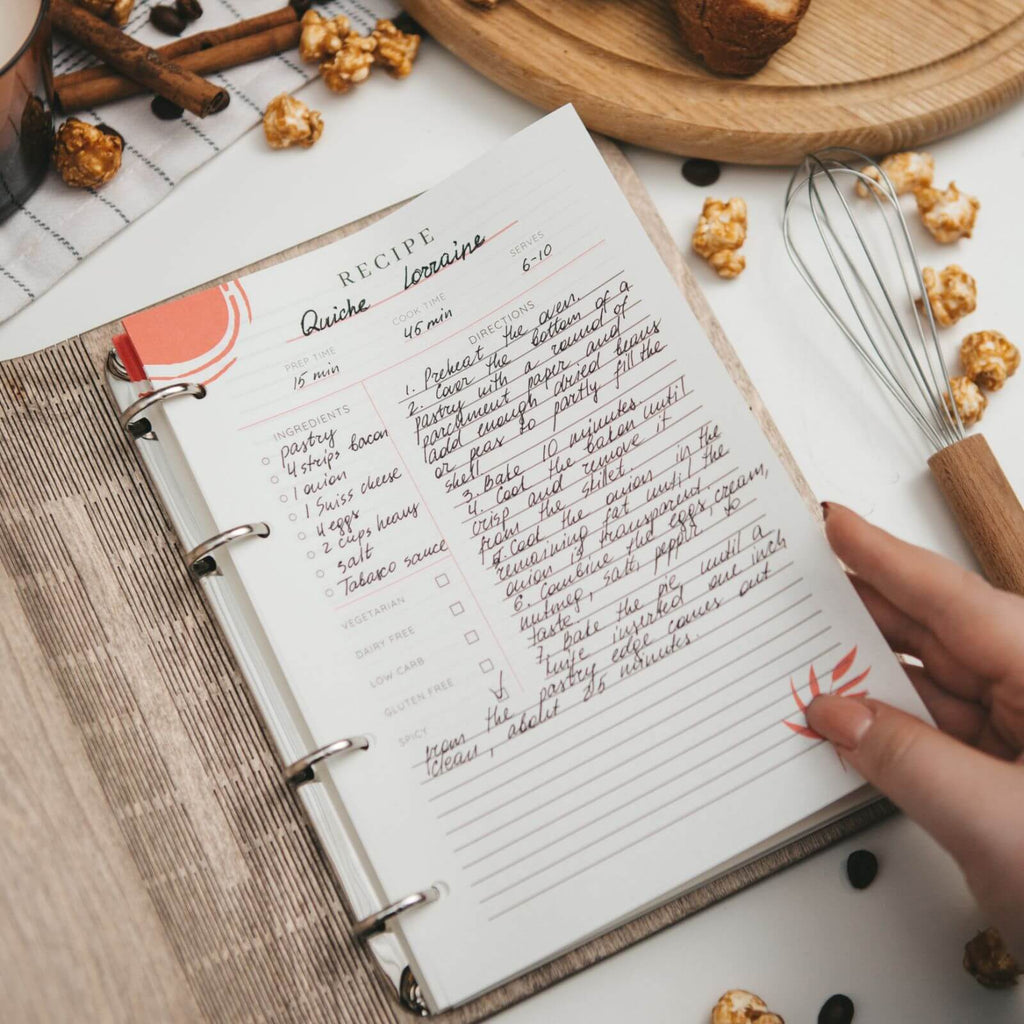 RECIPE
Quiche Lorraine
PREP TIME
15 min
COOK TIME
45 min
SERVES
6-10
INGREDIENTS
pastry
4 strips bacon
1 onion
1 Swiss cheese
4 eggs
2 cups heavy
salt
Tabasco sauce
VEGETARIAN
DAIRY FREE
LOW CARB
GLUTEN FREE
SPICY
DIRECTIONS
1. Preheat the oven.
2. Cover the bottom of a
pastry with a round of
parchment paper and
add enough dried beans
or peas to partly fill the
shell
3. Bake 10 minutes.
4. Cook the bacon until
crisp and remove it
from the skillet.
5. Cook the onion in the
remaining fat until the
onion is transparent.
6. Combine the eggs, cream,
nutmeg, salt, pepper to
taste.
7. Bake the pie until a
knife inserted one inch
the pastry edge comes out
from
clean, about 25 minutes.